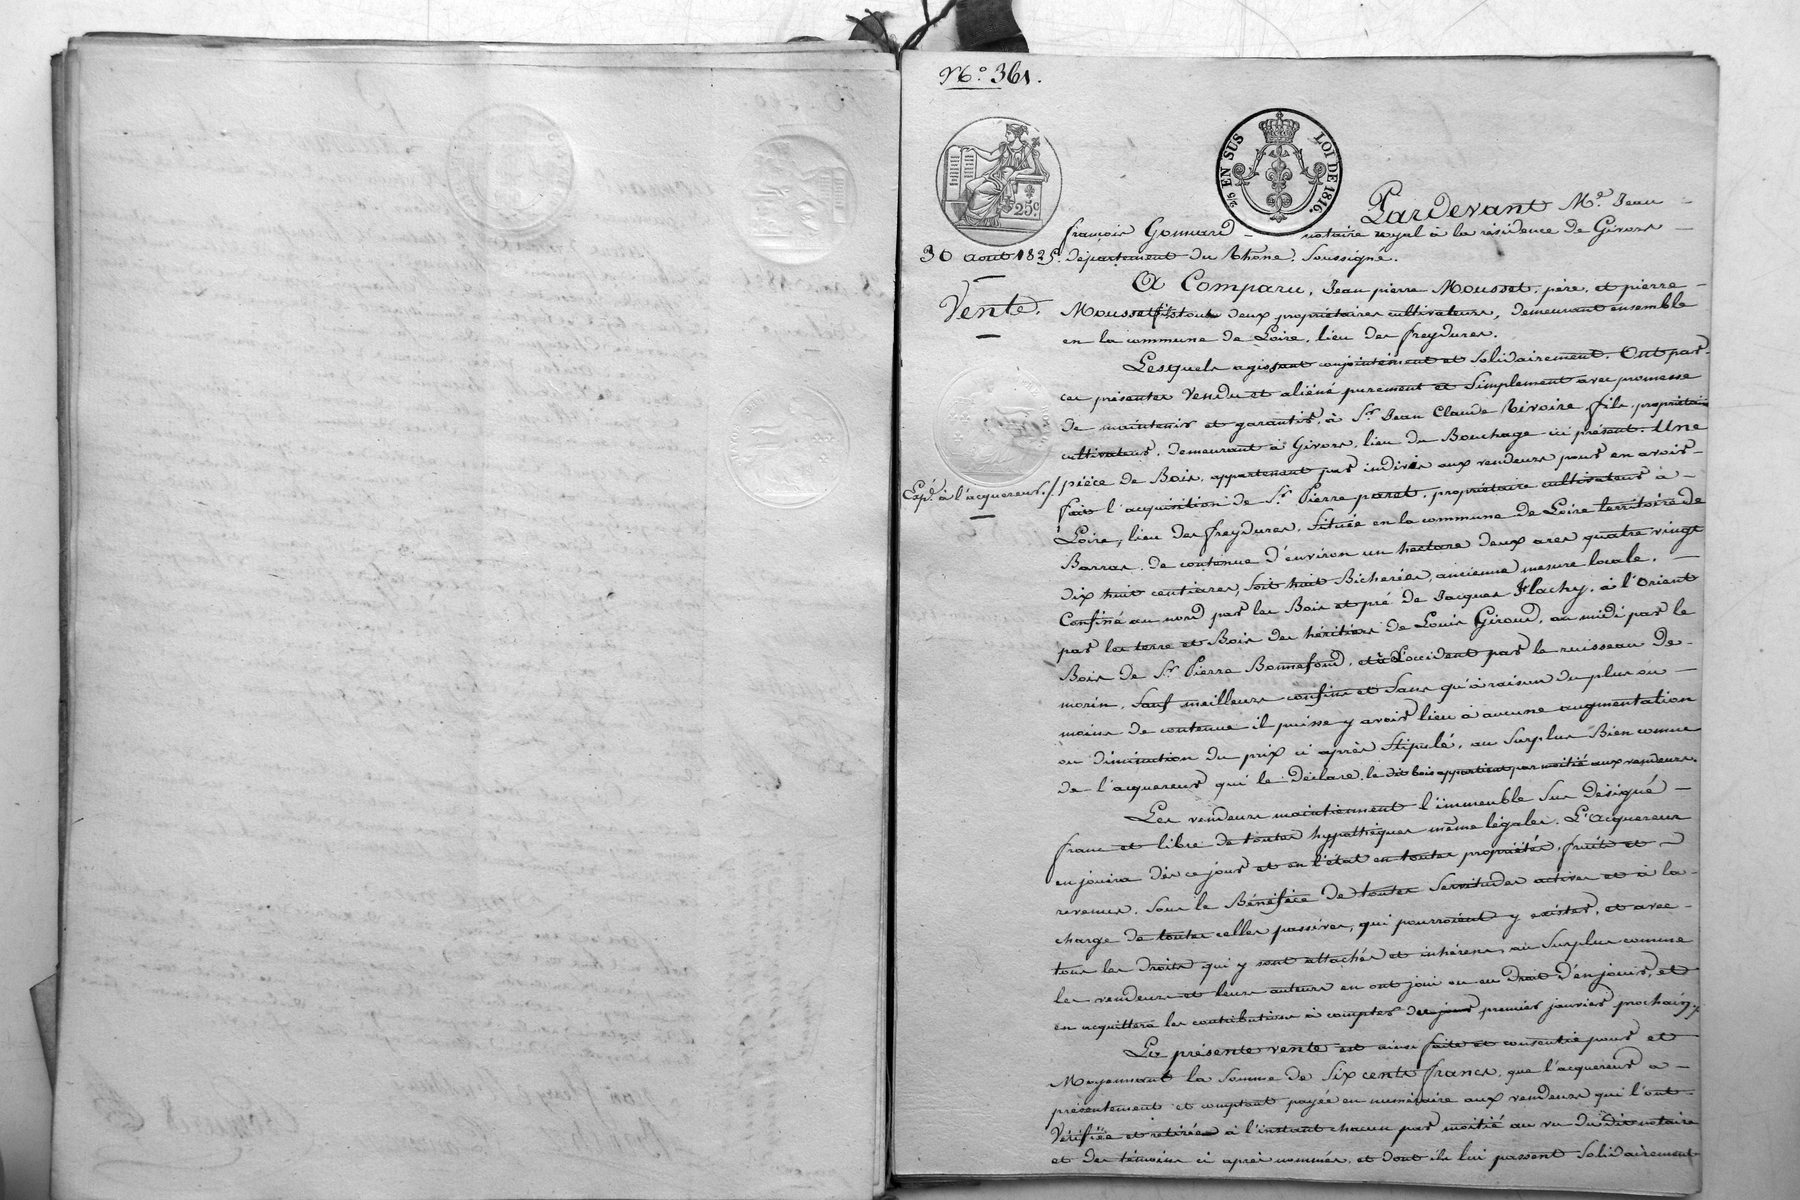 No. 361.
25 c
2/5 EN SUS LOI DE 1816.
Pardevant Me. Jean
françois Gonnard notaire royal à la résidence de Givors
30 aout 1825. département du Rhône. Soussigné.
A Comparu, Jean pierre Mousset, père, et pierre
Vente.
Mousset fils tous deux propriétaires cultivateurs, demeurant ensemble
en la commune de Loire, lieu des freydures.
Lesquels agissant conjointement et solidairement. Ont par
ces présentes Vendu et aliéné purement et simplement avec promesse
de maintenir et garantir, à Sr. Jean Claude Rivoire fils, propriétaire
cultivateur, demeurant à Givors, lieu du Bouchage ici présent. Une
pièce de Bois, appartenant par indivis aux vendeurs pour en avoir
Expé. à l'acquereur. /
fait l'acquisition de Sr. Pierre paret, propriétaire cultivateur à
Loire, lieu des freydures, Située en la commune de Loire territoire de
Barras, de contenue d'environ un hectare deux ares quatre vingt
dix huit centiares, soit huit Bicherées, ancienne mesure locale.
Confiné au nord par les Bois et pré de Jacques Flachy, à l'Orient
par les terre et Bois des héritiers de Louis Giroud, au midi par le
Bois de Sr. Pierre Bonnefond, et à L'occident par le ruisseau de
morin, Sauf meilleurs confins et Sans qu'à raison du plus ou
moins de contenue il puisse y avoir lieu à aucune augmentation
ou diminution du prix ci après Stipulé, au Surplus Bien connue
de l'acquereur qui le déclare. le dit bois appartient par moitié aux vendeurs.
Les vendeurs maintiennent l'immeuble Sus désigné
franc et libre de toutes hypothèques même légales. L'acquereur
en jouira dès ce jour et en l'état en toutes propriétés, fruits et
revenus. Sous le Bénéfice de toutes Servitudes actives et à la
charge de toutes celles passives, qui pourroient y exister, et avec
tous les droits qui y sont attachés et inhérens, au Surplus comme
les vendeurs et leurs auteurs en ont joui ou eu Droit d'en jouir, et
en acquittera les contributions à compter du jour premier janvier prochain.
La présente vente est ainsi faite et consentie pour et
Moyennant la Somme de Six cents francs, que l'acquereur a
présentement et comptant payée en numéraire aux vendeurs qui l'ont
Vérifiée et retirée à l'instant chacun par moitié au vu du dit notaire
et des témoins ci après nommés, et dont ils lui passent solidairement